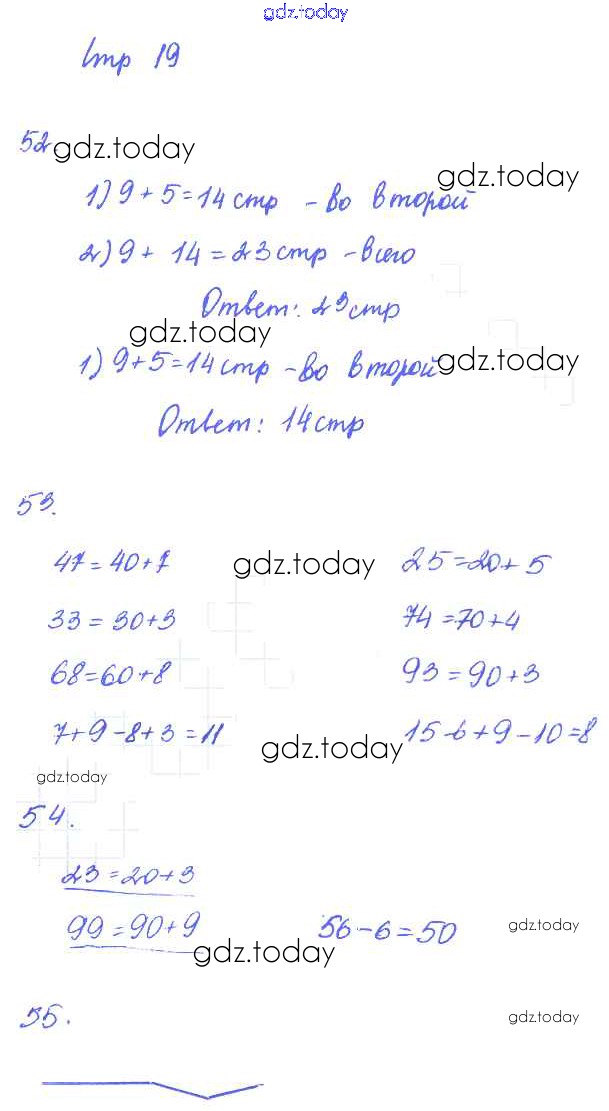 gdz.today
Стр 19
52 gdz.today
gdz.today
1) 9 + 5 = 14 стр - во второй
2) 9 + 14 = 23 стр - всего
Ответ: 23 стр
gdz.today
1) 9 + 5 = 14 стр - во второй gdz.today
Ответ: 14 стр
53.
47 = 40 + 7 gdz.today 25 = 20 + 5
33 = 30 + 3 74 = 70 + 4
68 = 60 + 8 93 = 90 + 3
7 + 9 - 8 + 3 = 11 gdz.today 15 - 6 + 9 - 10 = 8
gdz.today
54.
23 = 20 + 3
99 = 90 + 9 56 - 6 = 50 gdz.today
gdz.today
55. gdz.today